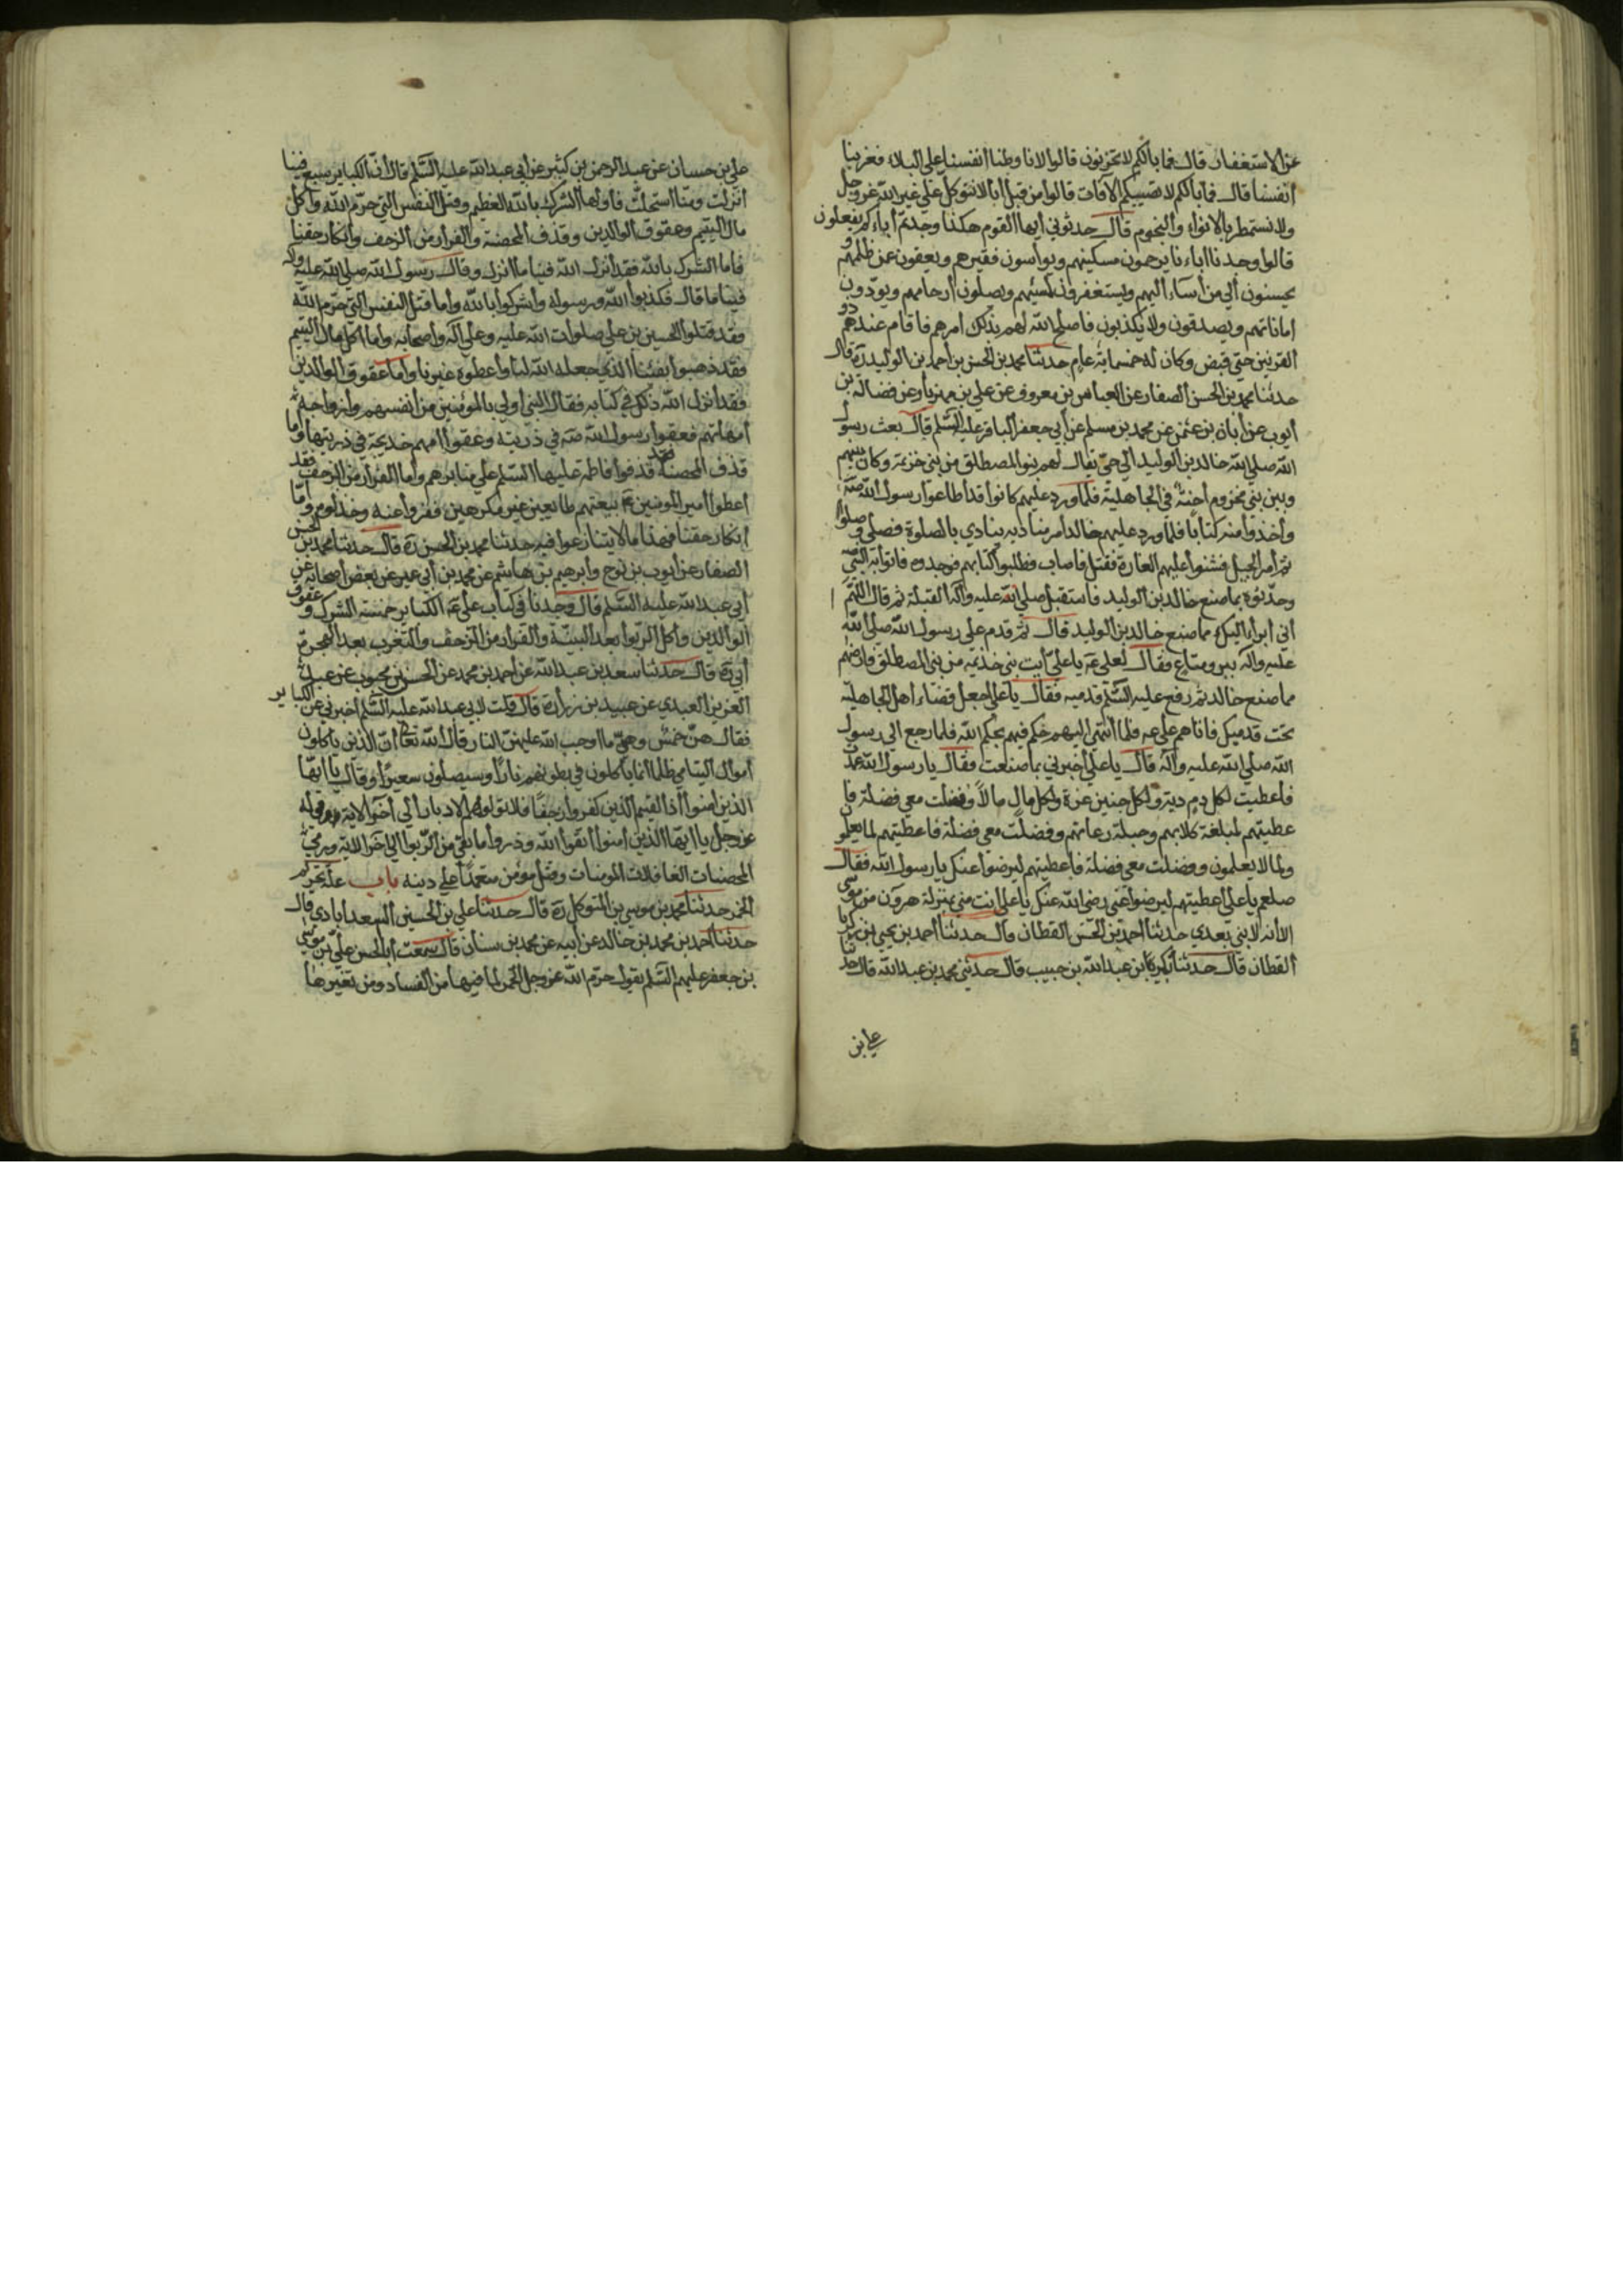 عن الاستغفار قال فما بالكم لا تحزنون قالوا لانا وطنا انفسنا على البلاء فعزينا
انفسنا قال فما بالكم لا تصيبكم الآفات قالوا من قبل انا لا نتوكل على غير الله عز وجل
ولا نستمطر بالانواء والنجوم قال حدثوني ايها القوم هكذا وجدتم آباءكم يفعلون
قالوا وجدنا آباءنا يرحمون مسكينهم ويواسون فقيرهم ويعفون عن ظلمهم و
يحسنون الى من اساء اليهم ويستغفرون لمسيئهم ويصلون ارحامهم ويودون
اماناتهم ويصدقون ولا يكذبون فاصلح الله لهم بذلك امرهم فاقام عندهم ذو
القرنين حتى قبض وكان له خمسماية عام حدثنا محمد بن الحسن بن احمد بن الوليد ره قال
حدثنا محمد بن الحسن الصفار عن العباس بن معروف عن علي بن مهزيار عن فضالة بن
ايوب عن ابان بن عثمن عن محمد بن مسلم عن ابي جعفر الباقر عليه السلم قال بعث رسول
الله صلى الله خالد بن الوليد الى حي يقال لهم بنو المصطلق من بني خزيمة وكان بينهم
وبين بني مخزوم احنة في الجاهلية فلما ورد عليهم كانوا قد اطاعوا رسول الله صه
واخذوا منه كتابا فلما ورد عليهم خالد امر مناديه ينادي بالصلوة فصلى وصلوا
ثم امر الخيل فشنوا عليهم الغارة فقتل فاصاب فطلبوا كتابهم فوجدوه فاتوا به النبي
وحدثوه بما صنع خالد بن الوليد فاستقبل صلى الله عليه وآله القبلة ثم قال اللهم
اني ابراء اليك مما صنع خالد بن الوليد قال ثم قدم على رسول الله صلى الله
عليه وآله ومتاع فقال لعلي عه يا علي ايت بني خذيمه من بني المصطلق فارضهم
مما صنع خالد ثم رفع عليه السلم قدميه فقال يا علي اجعل قضاء اهل الجاهلية
تحت قدميك فاتاهم علي عه فلما انتهى اليهم حكم فيهم بحكم الله فلما رجع الى رسول
الله صلى الله عليه وآله قال يا علي اخبرني بما صنعت فقال يا رسول الله عمدت
فاعطيت لكل دم دية ولكل جنين غرة ولكل مال مالا وفضلت معي فضلة فا
عطيتهم لمبلغة كلابهم وحبلة رعاتهم وفضلت معي فضلة فاعطيتهم لما يعلمون
ولما لا يعلمون وفضلت معي فضلة فاعطيتهم ليرضوا عنك يا رسول الله فقال
صلعم يا علي اعطيتهم ليرضوا عني رضي الله عنك يا علي انت مني بمنزلة هرون من موسى
الا انه لا نبي بعدي حدثنا احمد بن الحسن القطان قال حدثنا احمد بن يحيى بن زكريا
القطان قال حدثنا بكير بن عبد الله بن حبيب قال حدثني محمد بن عبد الله قال حدثنا
علي بن
علي بن حسان عن عبد الرحمن بن كثير عن ابي عبد الله عليه السلم قال ان الكباير سبع فينا
انزلت ومنا استحلت فاولها الشرك بالله العظيم وقتل النفس التي حرم الله واكل
مال اليتيم وعقوق الوالدين وقذف المحصنة والفرار من الزحف وانكار حقنا
فاما الشرك بالله فقد انزل الله فينا ما انزل وقال رسول الله صلى الله عليه وآله
فينا ما قال فكذبوا الله ورسوله واشركوا بالله واما قتل النفس التي حرم الله
فقد قتلوا الحسين بن علي صلوات الله عليه وعلى آله واصحابه واما اكل مال اليتيم
فقد ذهبوا بفيئنا الذي جعله الله لنا واعطوه غيرنا واما عقوق الوالدين
فقد انزل الله ذلك في كتابه فقال النبي اولى بالمؤمنين من انفسهم وازواجه
امهاتهم فعقوا رسول الله صه في ذريته وعقوا امهم خديجة في ذريتها واما
قذف المحصنة فقد قذفوا فاطمة عليها السلم على منابرهم واما الفرار من الزحف فقد
اعطوا امير المومنين عه بيعتهم طايعين غير مكرهين ففروا عنه وخذلوه واما
انكار حقنا فهذا ما لا يتنازعوا فيه حدثنا محمد بن الحسن ره قال حدثنا محمد بن الحسن
الصفار عن ايوب بن نوح وابرهيم بن هاشم عن محمد بن ابي عمير عن بعض اصحابه عن
ابي عبد الله عليه السلم قال وجدنا في كتاب علي عه الكباير خمسة الشرك وعقوق
الوالدين واكل الربوا بعد البينة والفرار من الزحف والتعرب بعد الهجرة
ابي ره قال حدثنا سعد بن عبد الله عن احمد بن محمد عن الحسن بن محبوب عن عبد
العزيز العبدي عن عبيد بن زرارة قال قلت لابي عبد الله عليه السلم اخبرني عن الكباير
فقال هن خمس وهي ما اوجب الله عليهن النار قال الله تعالى ان الذين ياكلون
اموال اليتامى ظلما انما ياكلون في بطونهم نارا وسيصلون سعيرا وقال يا ايها
الذين امنوا اذا لقيتم الذين كفروا زحفا فلا تولوهم الادبار الى اخر الاية وقوله
عز وجل يا ايها الذين امنوا اتقوا الله وذروا ما بقي من الربوا الى اخر الاية ورمي
المحصنات الغافلات المومنات وقتل مؤمن متعمدا على دينه باب علة تحريم
الخمر حدثنا محمد بن موسى بن المتوكل ره قال حدثنا علي بن الحسين السعدابادي قال
حدثنا احمد بن محمد بن خالد عن ابيه عن محمد بن سنان قال سمعت ابا الحسن علي بن موسى
بن جعفر عليهم السلم يقول حرم الله عز وجل الخمر لما فيها من الفساد ومن تغييرها